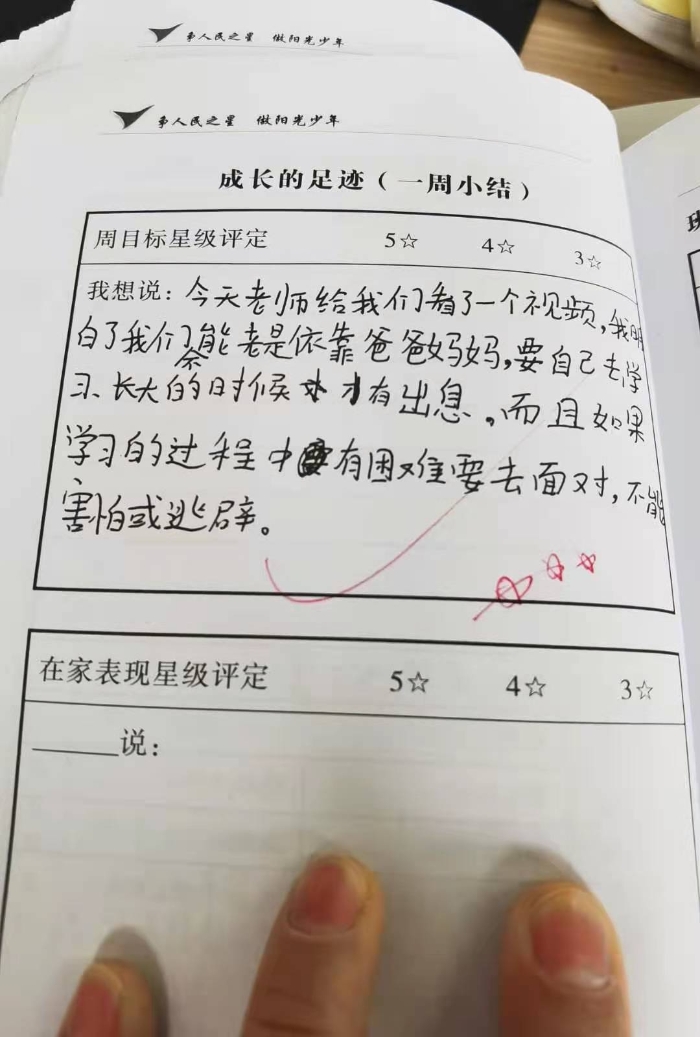 争人民之星 做阳光少年
争人民之星 做阳光少年
成长的足迹（一周小结）
周目标星级评定 5☆ 4☆ 3☆
我想说：今天老师给我们看了一个视频，我明
白了我们不能老是依靠爸爸妈妈，要自己去学
习、长大的时候才有出息。而且如果
学习的过程中有困难要去面对，不能
害怕或逃辟。
在家表现星级评定 5☆ 4☆ 3☆
______说：